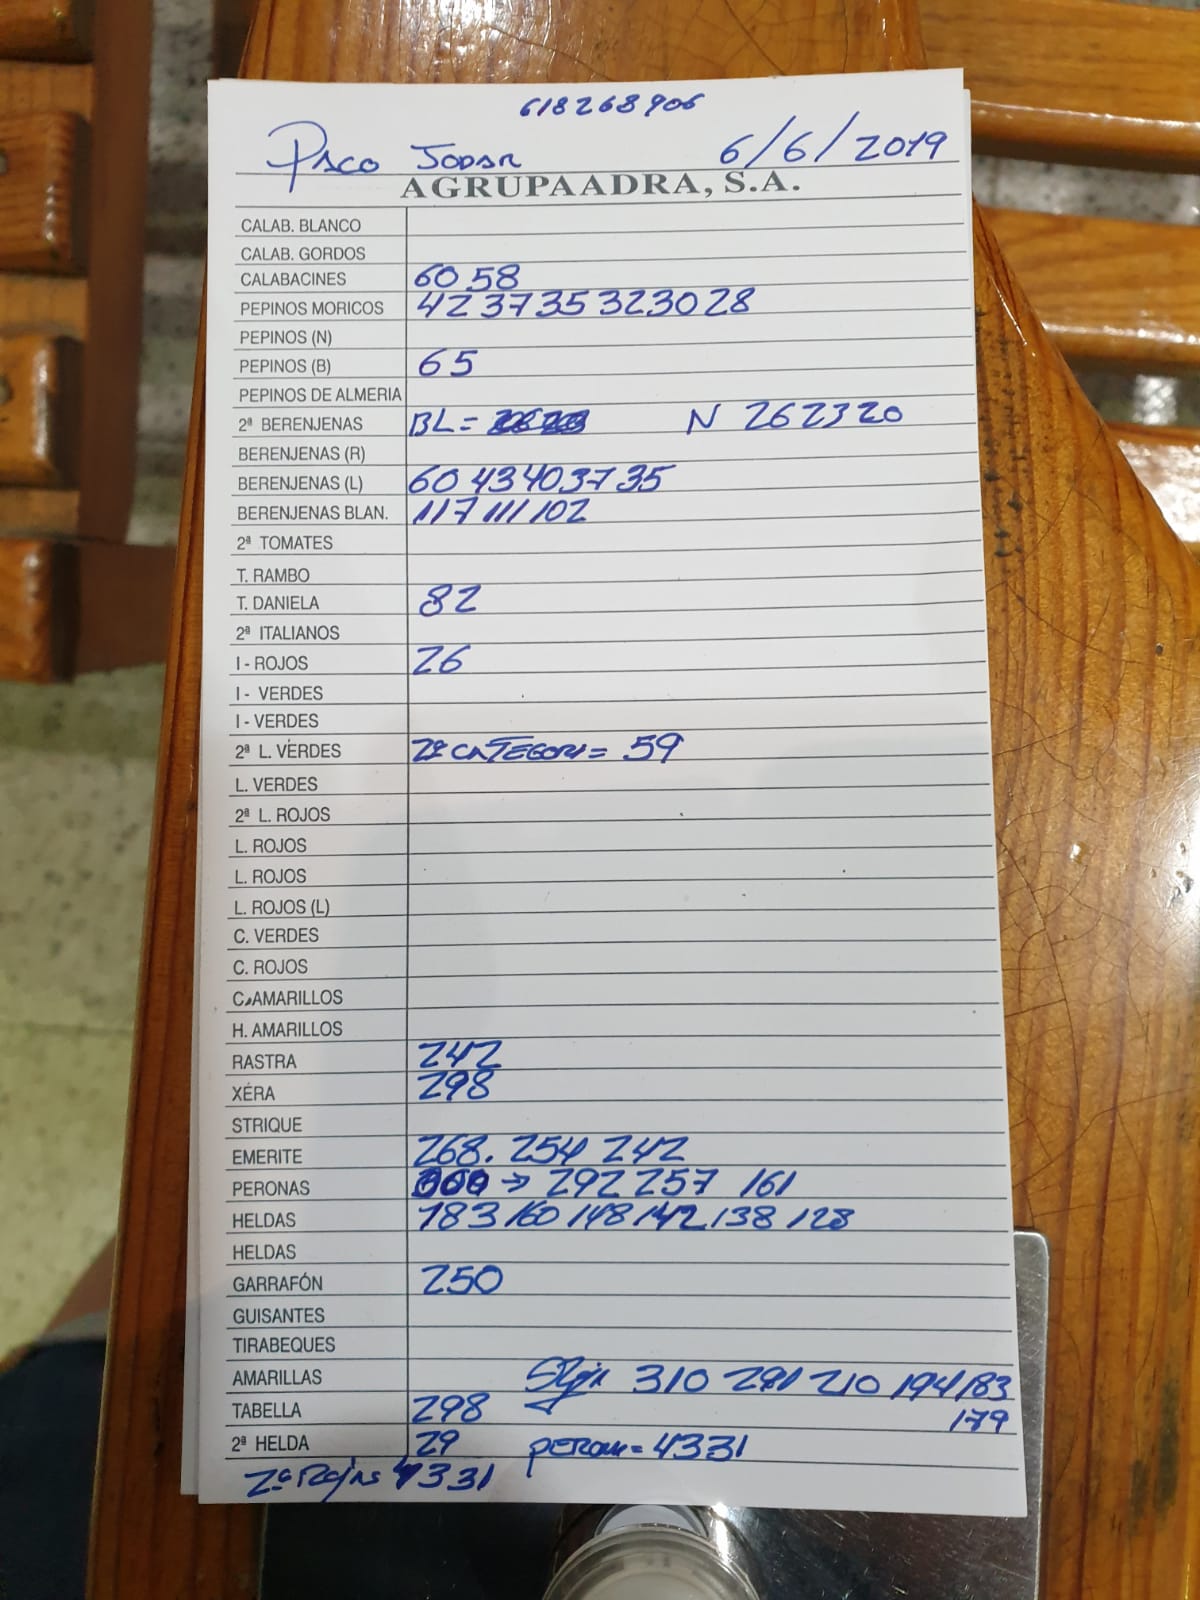 618268906
Paco Jodar 6/6/2019
AGRUPAADRA, S.A.
CALAB. BLANCO
CALAB. GORDOS
CALABACINES 60 58
PEPINOS MORICOS 42 37 35 32 30 28
PEPINOS (N)
PEPINOS (B) 65
PEPINOS DE ALMERIA
2ª BERENJENAS BL= N 26 23 20
BERENJENAS (R)
BERENJENAS (L) 60 43 40 37 35
BERENJENAS BLAN. 117 111 102
2ª TOMATES
T. RAMBO
T. DANIELA 82
2ª ITALIANOS
I - ROJOS 26
I - VERDES
I - VERDES
2ª L. VERDES 2ª CATEGORI= 59
L. VERDES
2ª L. ROJOS
L. ROJOS
L. ROJOS
L. ROJOS (L)
C. VERDES
C. ROJOS
C. AMARILLOS
H. AMARILLOS
RASTRA 242
XÉRA 298
STRIQUE
EMERITE 268. 254 242
PERONAS → 292 257 161
HELDAS 183 160 148 142 138 128
HELDAS
GARRAFÓN 250
GUISANTES
TIRABEQUES
AMARILLAS 310 291 210 194 183
TABELLA 298 179
2ª HELDA 29 PERONA= 43 31
2ª Rojas 4331